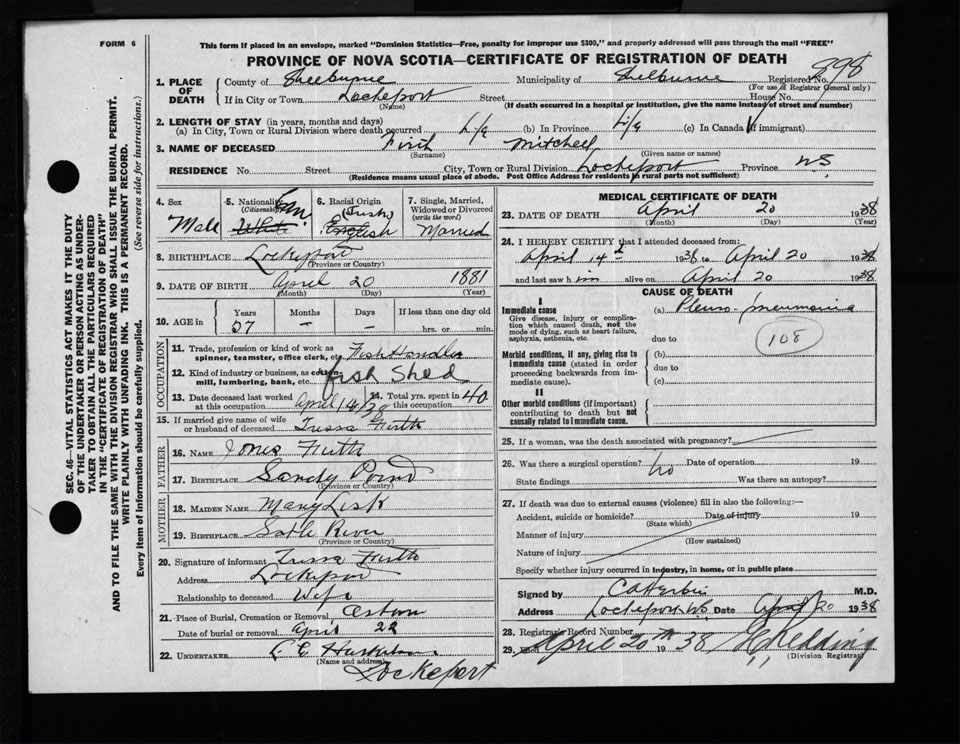 FORM 6
This form if placed in an envelope, marked "Dominion Statistics—Free, penalty for improper use $300," and properly addressed will pass through the mail "FREE"
PROVINCE OF NOVA SCOTIA—CERTIFICATE OF REGISTRATION OF DEATH
1. PLACE OF DEATH County of Shelburne Municipality of Shelburne Registered No. 898
(For use of Registrar General only)
If in City or Town Lockeport Street House No.
(Name) (If death occurred in a hospital or institution, give the name instead of street and number)
2. LENGTH OF STAY (in years, months and days)
(a) In City, Town or Rural Division where death occurred Life (b) In Province Life (c) In Canada (if immigrant)
3. NAME OF DECEASED Firth Mitchell
(Surname) (Given name or names)
RESIDENCE No. Street City, Town or Rural Division Lockeport Province N.S.
(Residence means usual place of abode. Post Office Address for residents in rural parts not sufficient)
4. Sex Male
5. Nationality (Citizenship) White Can
6. Racial Origin English (Irish)
7. Single, Married, Widowed or Divorced (write the word) Married
8. BIRTHPLACE Lockeport
(Province or Country)
9. DATE OF BIRTH April 20 1881
(Month) (Day) (Year)
10. AGE in Years Months Days If less than one day old
57 — — hrs. or min.
OCCUPATION
11. Trade, profession or kind of work as spinner, teamster, office clerk, etc. Fish Handler
12. Kind of industry or business, as cotton mill, lumbering, bank, etc. Fish Shed
13. Date deceased last worked at this occupation April 14/38 14. Total yrs. spent in this occupation 40
15. If married give name of wife or husband of deceased Tressa Firth
FATHER
16. NAME Jones Firth
17. BIRTHPLACE Sandy Point
(Province or Country)
MOTHER
18. MAIDEN NAME Mary Lisk
19. BIRTHPLACE Sable River
(Province or Country)
20. Signature of informant Tressa Firth
Address Lockeport
Relationship to deceased Wife
21. Place of Burial, Cremation or Removal
Date of burial or removal April 22
22. UNDERTAKER
(Name and address) Lockeport
MEDICAL CERTIFICATE OF DEATH
23. DATE OF DEATH April 20 1938
(Month) (Day)
24. I HEREBY CERTIFY that I attended deceased from:
April 14 1938 to April 20 1938
and last saw him alive on April 20 1938
CAUSE OF DEATH
I
Immediate cause (a) Pleuro-pneumonia
Give disease, injury or complication which caused death, not the mode of dying, such as heart failure, asphyxia, asthenia, etc.
due to 108
Morbid conditions, if any, giving rise to immediate cause (stated in order proceeding backwards from immediate cause).
(b)
due to
(c)
II
Other morbid conditions (if important) contributing to death but not causally related to immediate cause.
25. If a woman, was the death associated with pregnancy?
26. Was there a surgical operation? No Date of operation 19
State findings Was there an autopsy?
27. If death was due to external causes (violence) fill in also the following:—
Accident, suicide or homicide? Date of injury 19
(State which)
Manner of injury
(How sustained)
Nature of injury
Specify whether injury occurred in industry, in home, or in public place
Signed by M.D.
Address Lockeport N.S. Date April 20 1938
28. Registrar's Record Number
29. Filed April 20 1938
(Division Registrar)
SEC. 46—VITAL STATISTICS ACT MAKES IT THE DUTY
OF THE UNDERTAKER OR PERSON ACTING AS UNDER-
TAKER TO OBTAIN ALL THE PARTICULARS REQUIRED
IN THE "CERTIFICATE OF REGISTRATION OF DEATH"
AND TO FILE THE SAME WITH THE DIVISION REGISTRAR WHO SHALL ISSUE THE BURIAL PERMIT.
WRITE PLAINLY WITH UNFADING INK. THIS IS A PERMANENT RECORD.
Every item of information should be carefully supplied. (See reverse side for instructions.)